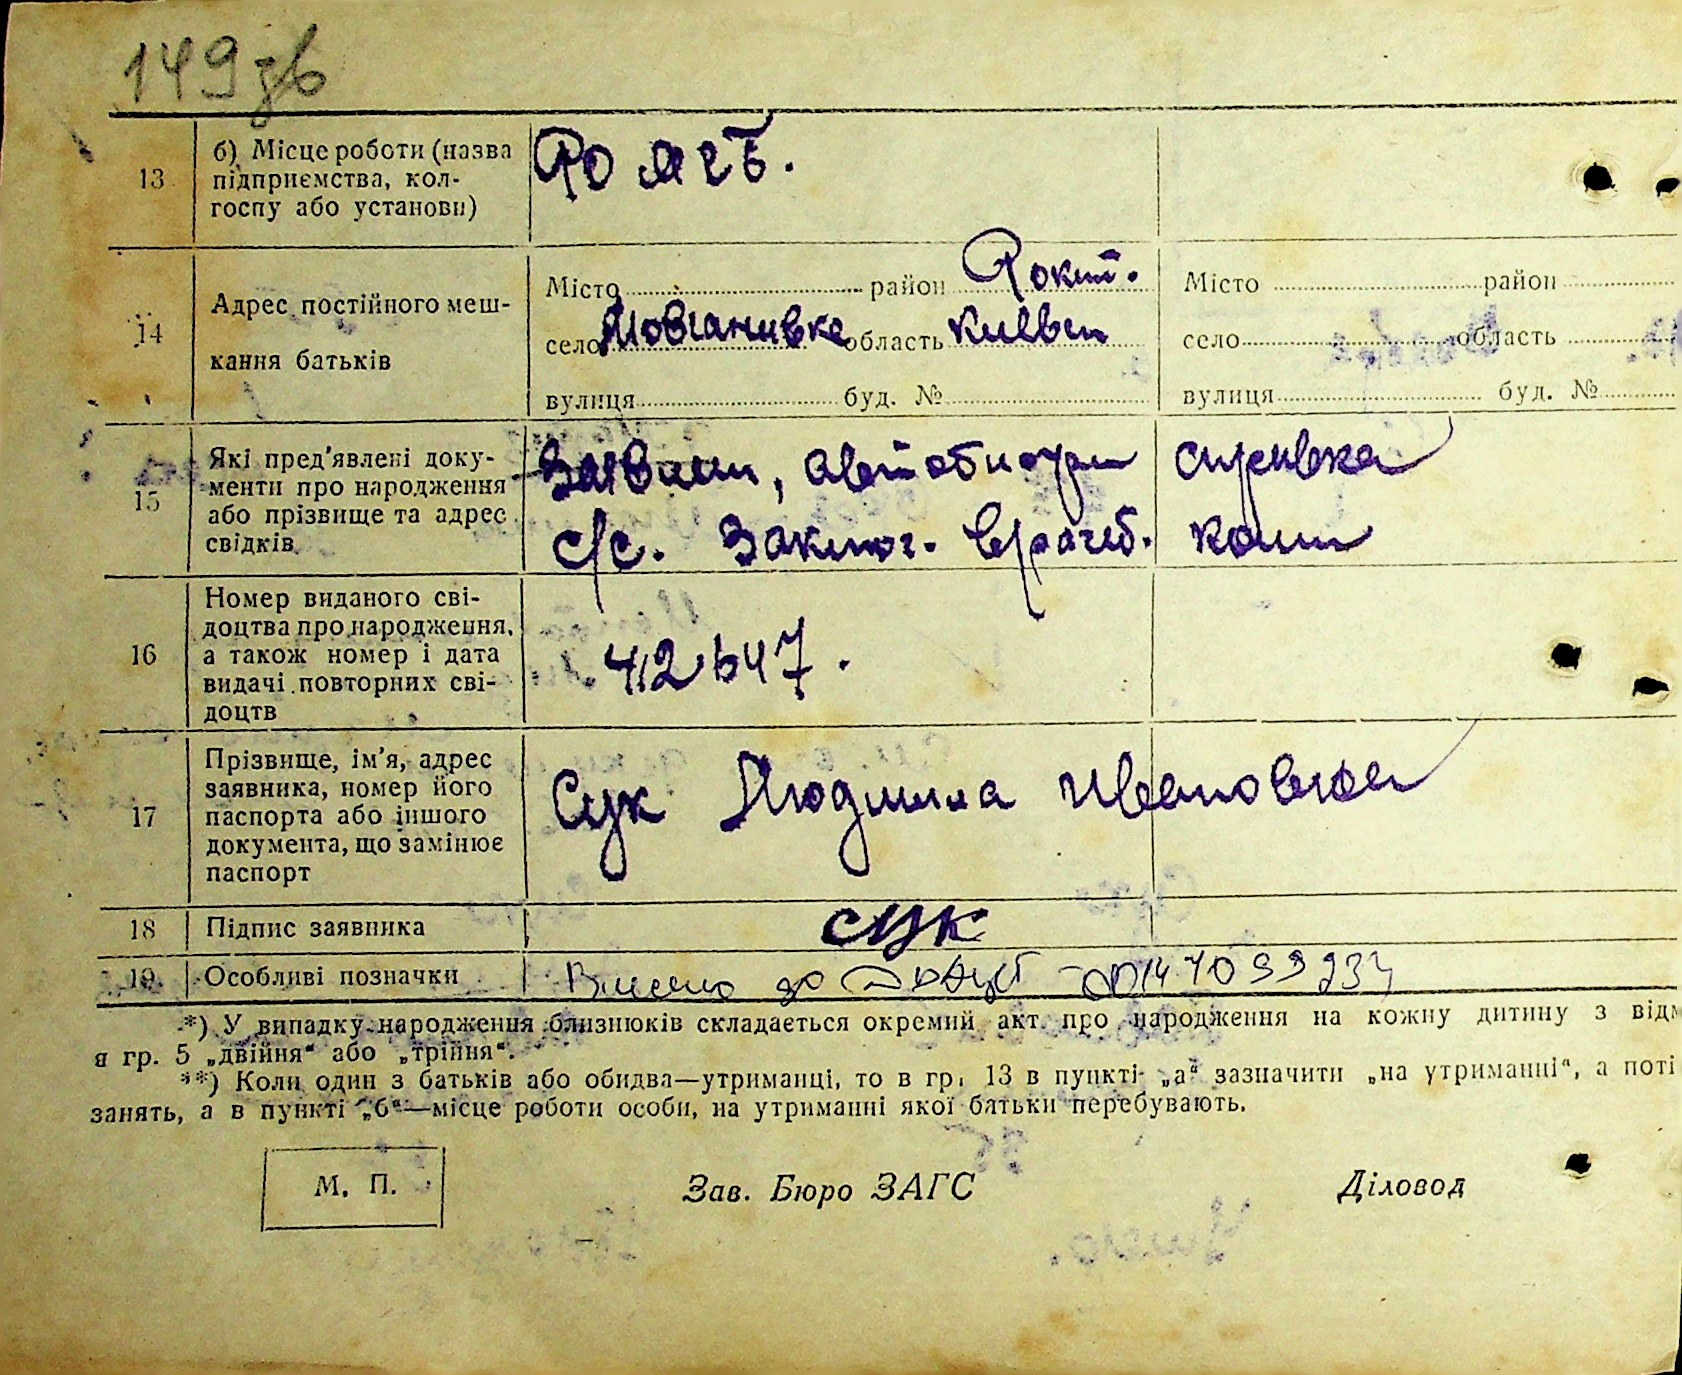 149 зв
13 б) Місце роботи (назва
підприємства, кол-
госпу або установи)
14 Адрес постійного меш-
кання батьків
Місто район Рокит.
село Мовчанивка область Киевск
вулиця буд. №
Місто район
село область
вулиця буд. №
15 Які пред'явлені доку-
менти про народження
або прізвище та адрес
свідків
справка
с/с. Заключ. врачеб. ком
16 Номер виданого сві-
доцтва про народження,
а також номер і дата
видачі повторних сві-
доцтв
412647.
17 Прізвище, ім'я, адрес
заявника, номер його
паспорта або іншого
документа, що замінює
паспорт
Сук Людмила Ивановна
18 Підпис заявника Сук
19 Особливі позначки Внесено до
*) У випадку народження близнюків складається окремий акт про народження на кожну дитину з відм
я гр. 5 „двійня“ або „трійня“.
**) Коли один з батьків або обидва—утриманці, то в гр. 13 в пункті „а“ зазначити „на утриманні“, а поті
занять, а в пункті „б“—місце роботи особи, на утриманні якої батьки перебувають.
М. П. Зав. Бюро ЗАГС Діловод